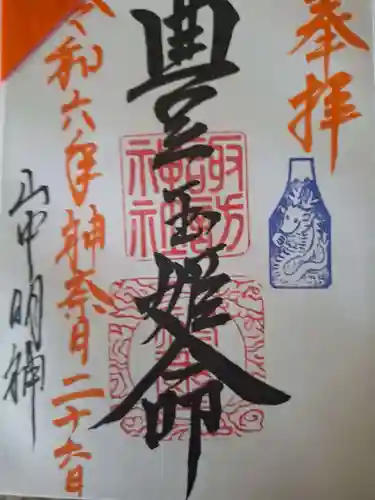 奉拝
豊玉姫命
諏訪
神社
令和六年神奈月二十六日
山中明神